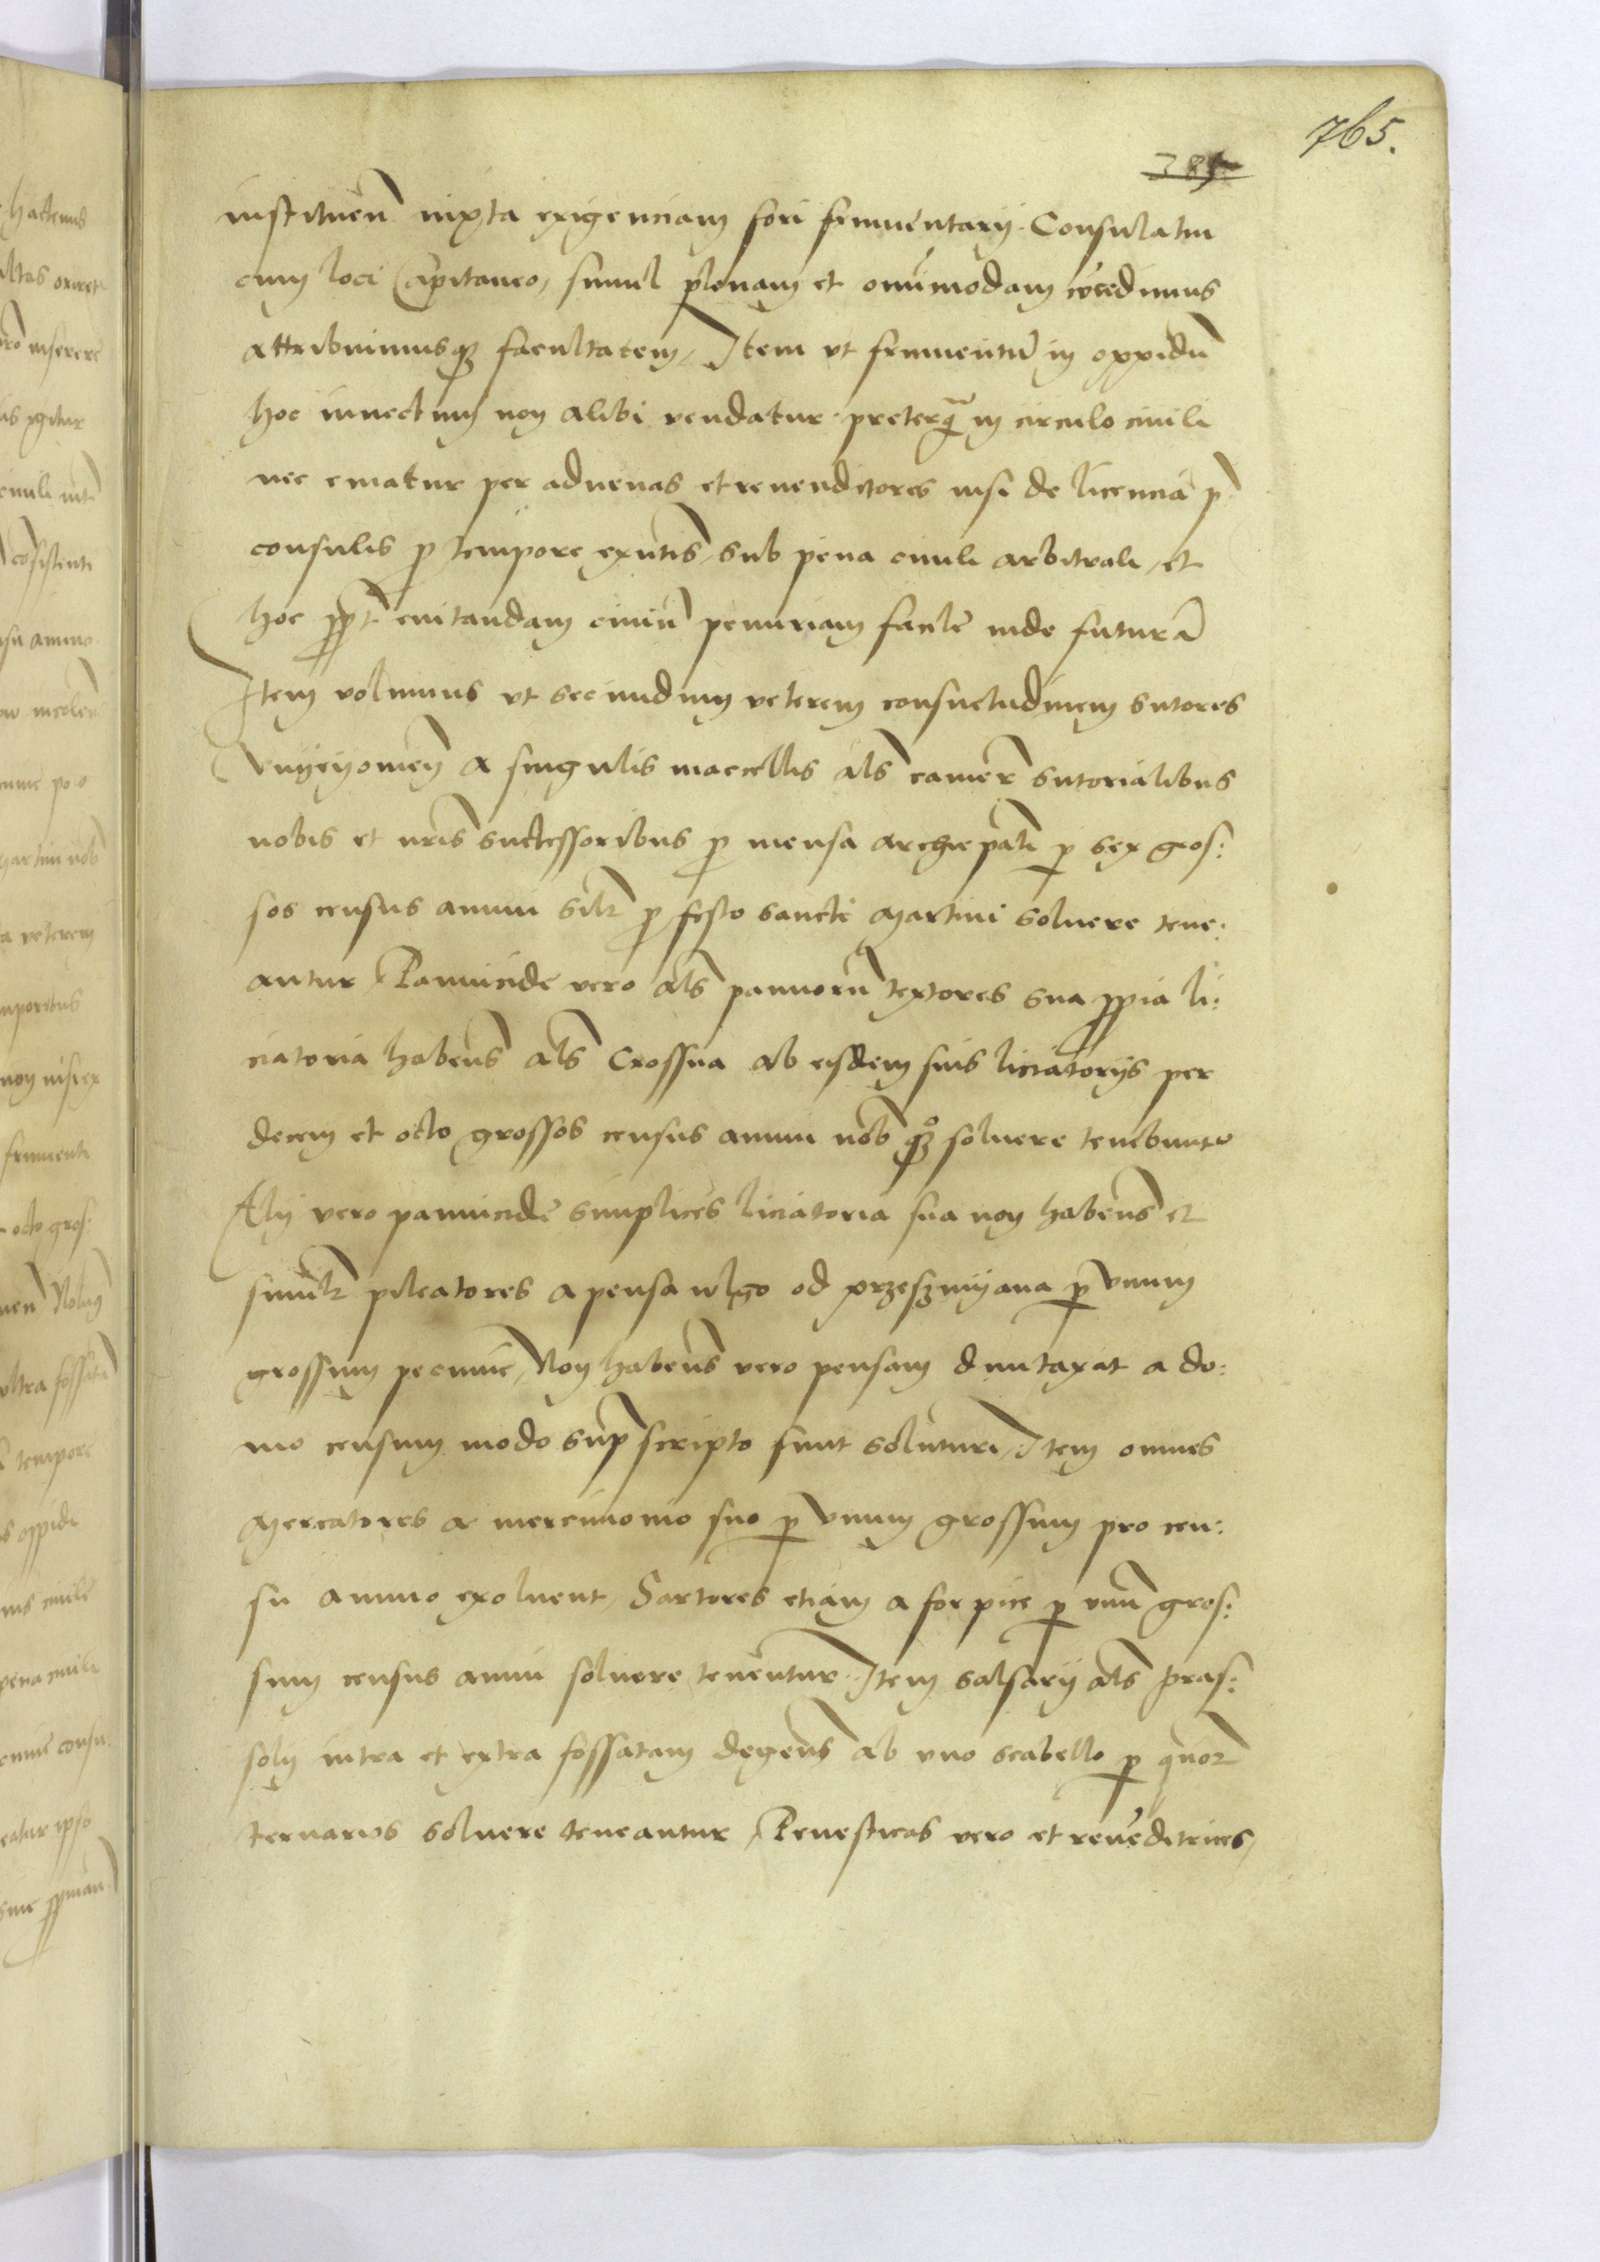 765.
385
instituen̄ iuxta exigenciam fori frumentarij. Consulatui
cum loci Capitaneo, simul plenam et omīmodam cōcedimus
attribuimusqꝫ facultatem, Item vt frumentū in oppidū
hoc inuectum non alibi vendatur preterq̄ in circulo ciuili
nec ematur per aduenas et reuenditores nisi de licencia ꝓ
consulis ꝓ tempore exn̄tis sub pena ciuili arbitrali, et
hoc ꝓpt̄ euitandam ciuiū penuriam facile inde futurā
Item volumus vt secundum veterem consuetudinem sutores
a singulis maccellis al̄s camer̄ sutorialibus
nobis et nr̄is successoribus ꝓ mensa archiep̄ali ꝑ sex gros:
sos census annui sil̄r ꝓ festo sancti Martini soluere tene:
antur Pannicide vero al̄s pannorū textores sua ꝓpia li:
ciatoria haben̄s al̄s Crossna ab eisdem suis liciatorijs per
decem et octo grossos census annui nob̄ qꝫ soluere tenebunt᷑
Alij vero pannicide simplices liciatoria sua non haben̄s et
simil̄r pileatores a pensa wlgo od przeszmyana ꝑ vnum
grossum pecunie, Non haben̄s vero pensam duntaxat a do:
mo censum modo sup̄scripto sunt soluturi, Item omnes
Mercatores a mercimonio suo ꝑ vnum grossum pro cen:
su annuo exoluent, Sartores etiam a forpice ꝑ vnū gros:
sum census annui soluere tenentur. Item salsarij al̄s pras:
soly intra et extra fossatam degen̄s ab vno scabello ꝑ q̄tuor
ternarios soluere teneantur, Penesticas vero et reuēditrices,